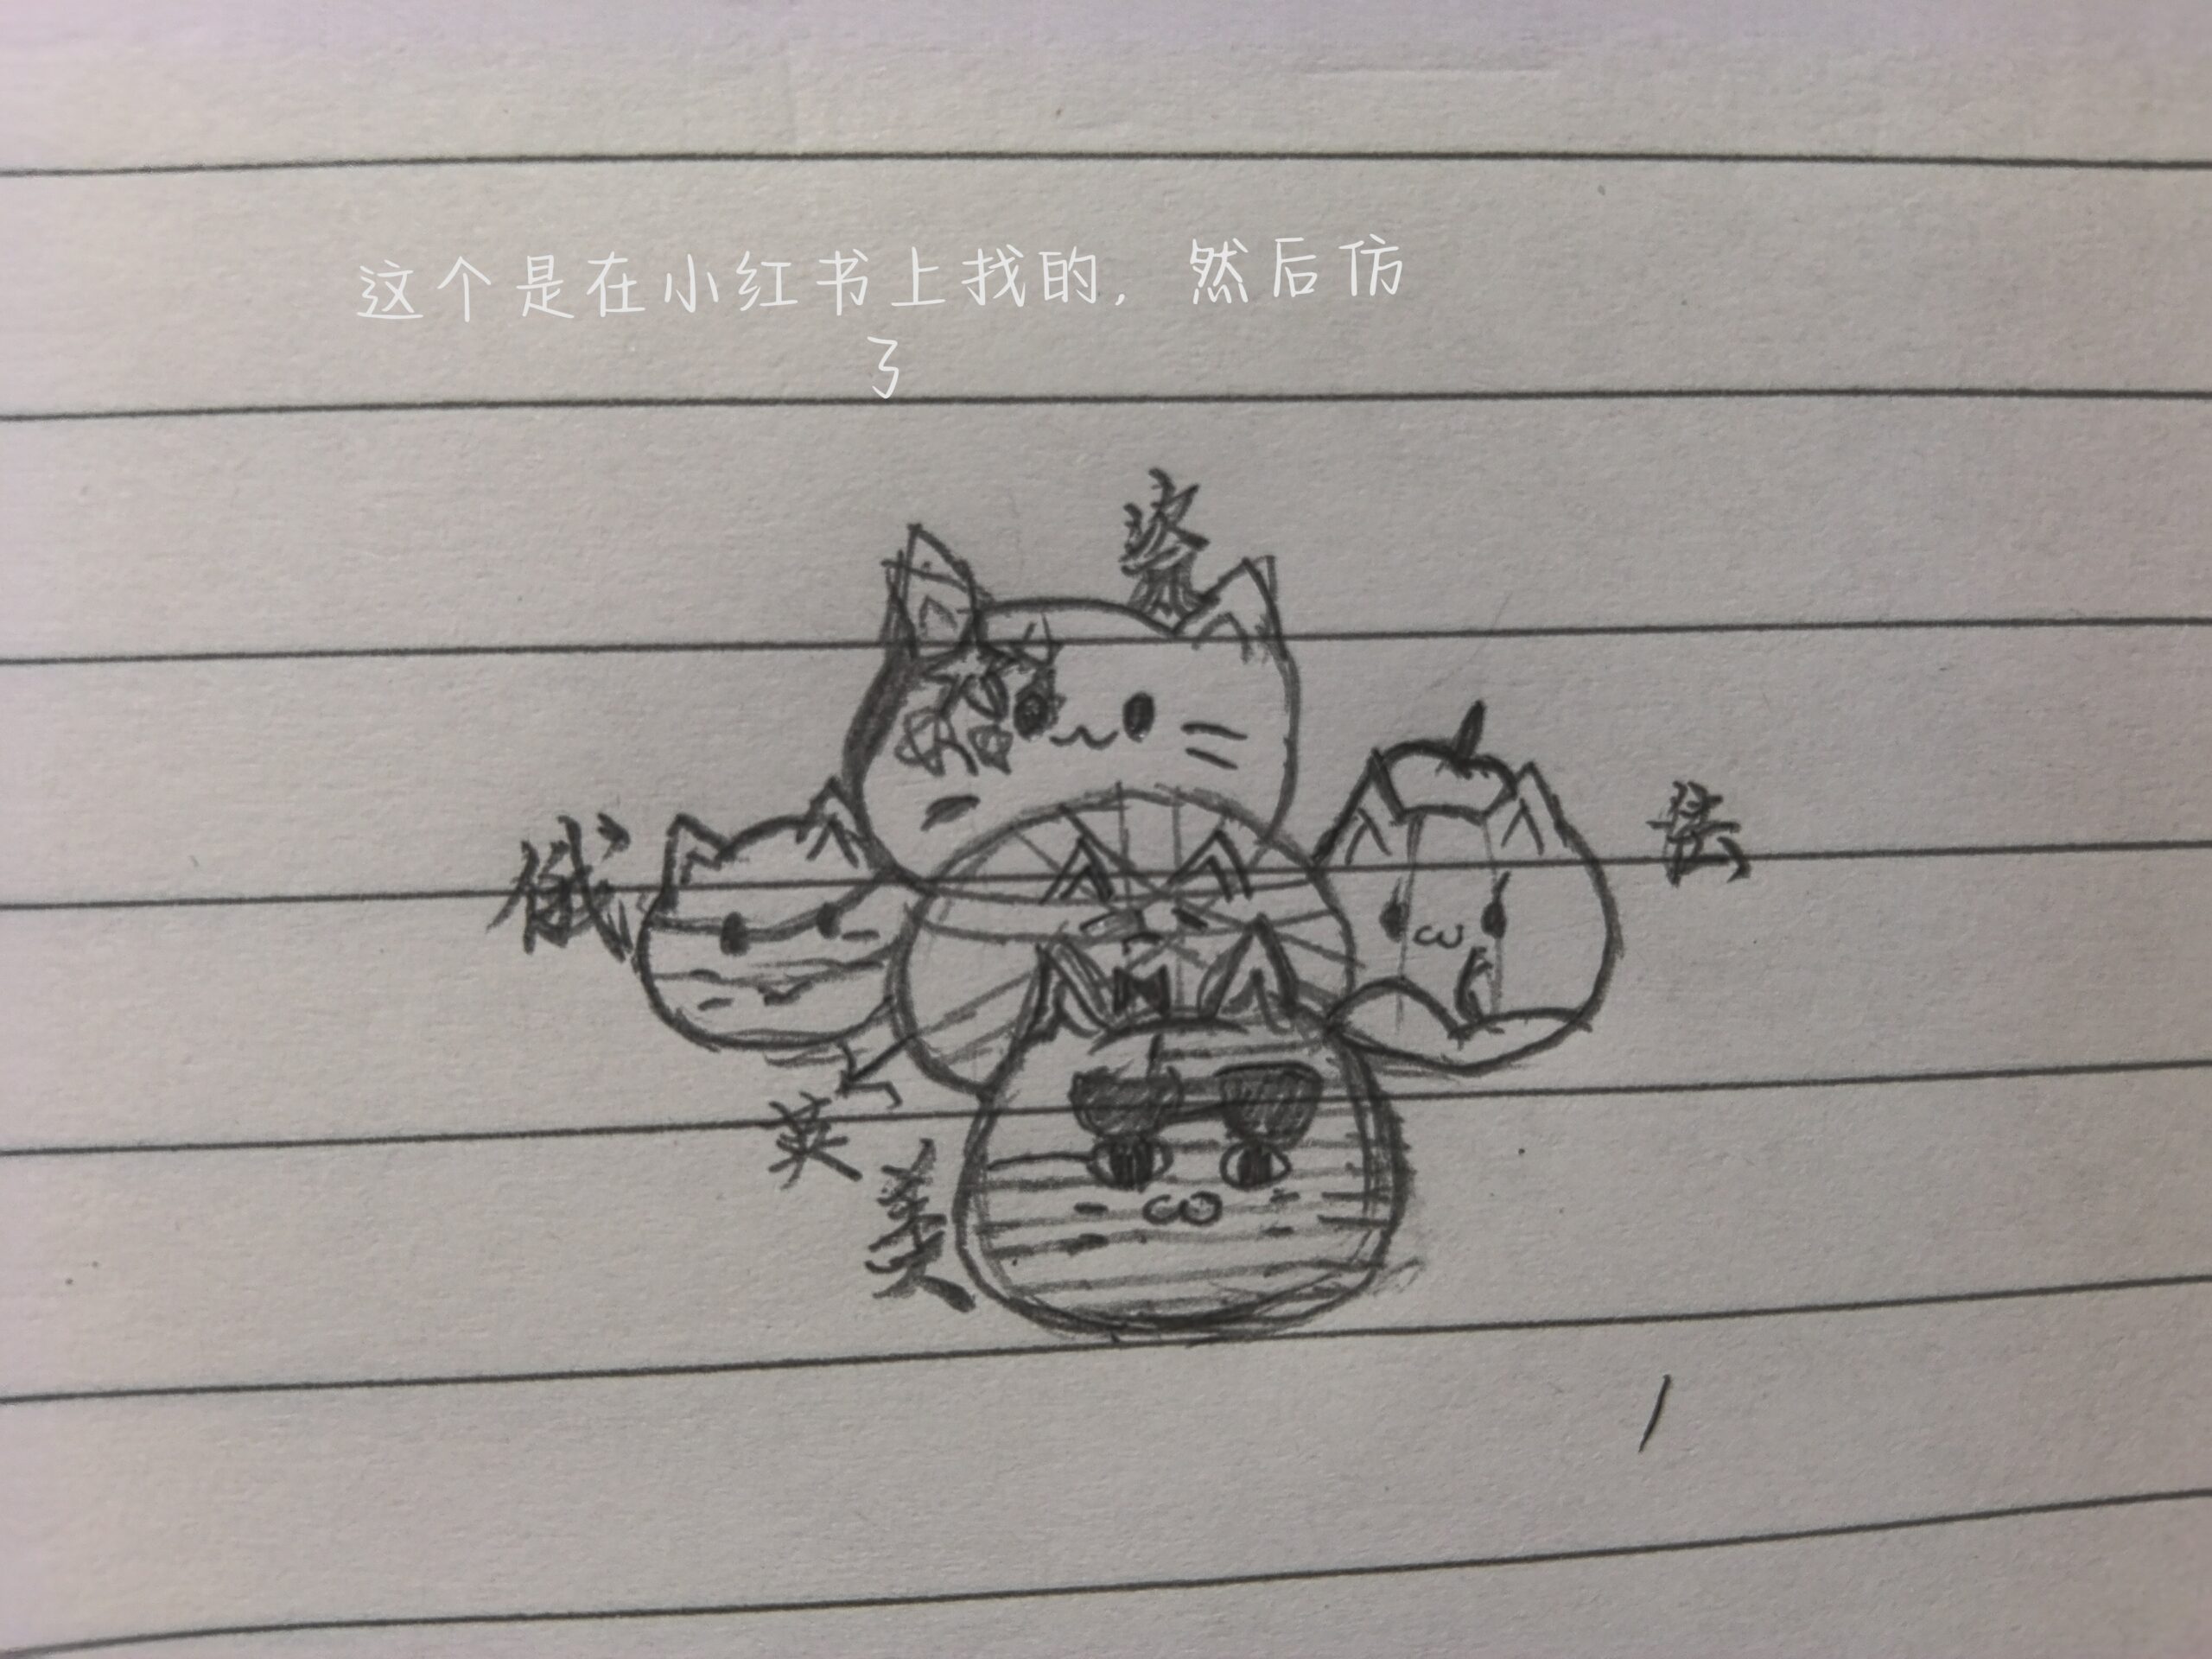 这个是在小红书上找的，然后仿
了
俄
法
英
美